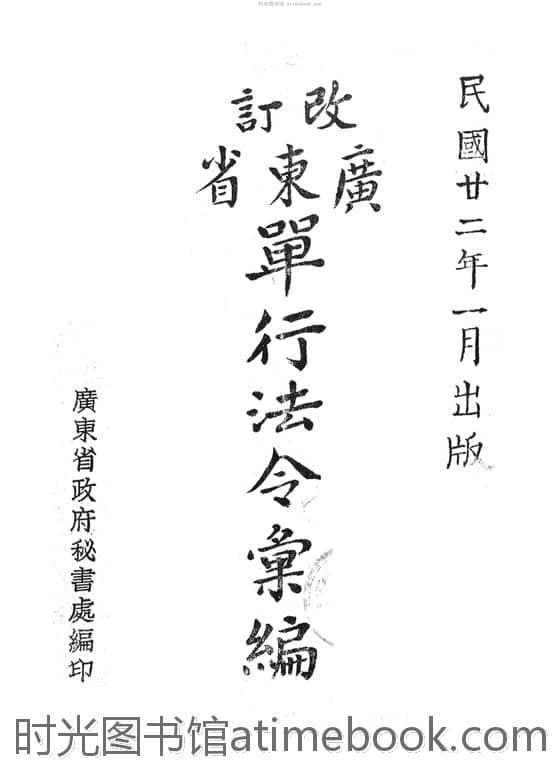 时光图书馆 atimebook.com
民國廿二年一月出版
改訂
廣東省
單行法令彙編
廣東省政府秘書處編印
时光图书馆atimebook.com